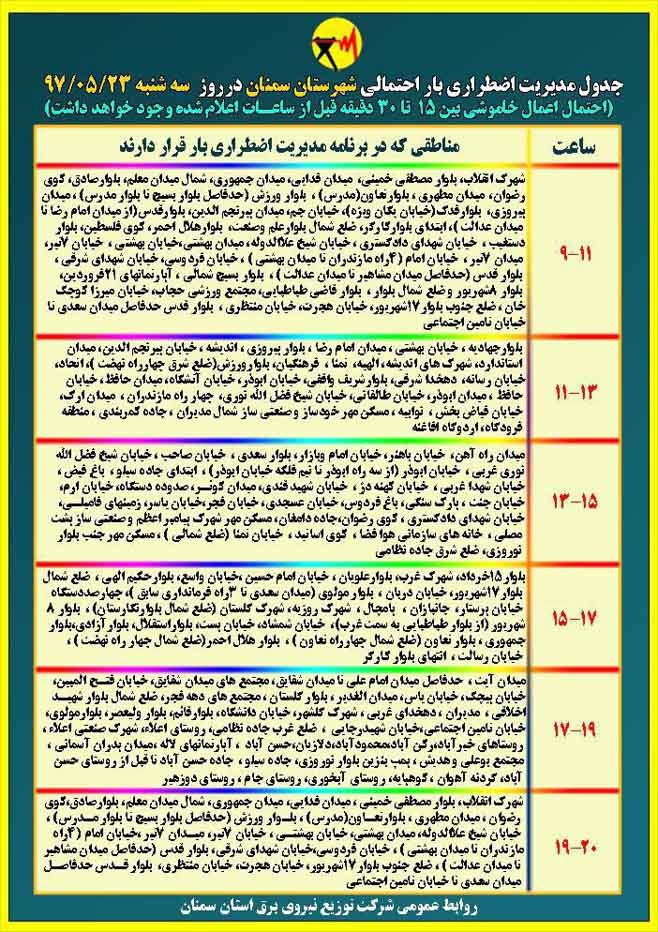 جدول مدیریت اضطراری بار احتمالی شهرستان سمنان در روز سه شنبه ۹۷/۰۵/۲۳
(احتمال اعمال خاموشی بین ۱۵ تا ۳۰ دقیقه قبل از ساعات اعلام شده وجود خواهد داشت)
ساعت
مناطقی که در برنامه مدیریت اضطراری بار قرار دارند
۹-۱۱
شهرک انقلاب، بلوار مصطفی خمینی، میدان فدایی، میدان جمهوری، شمال میدان معلم، بلوارصادق، کوی
رضوان، میدان مطهری، بلوارتعاون(مدرس)، بلوار ورزش (حدفاصل بلوار بسیج تا بلوار مدرس)، میدان
پیروزی، بلوارفدک (خیابان یگان ویژه)، خیابان جم، میدان پیرنجم الدین، بلوارقدس(از میدان امام رضا تا
میدان عدالت)، ابتدای بلوارکارگر، ضلع شمال بلوارعلم وصنعت، بلوارهلال احمر، کوی فلسطین، بلوار
دستغیب، خیابان شهدای دادگستری، خیابان شیخ علاالدوله، میدان بهشتی،خیابان بهشتی، خیابان ۷تیر،
میدان ۷تیر، خیابان امام (۴راه مازندران تا میدان بهشتی)، خیابان فردوسی، خیابان شهدای شرقی،
بلوار قدس (حدفاصل میدان مشاهیر تا میدان عدالت)، بلوار بسیج شمالی، آپارتمانهای ۲۱فروردین،
بلوار ۸شهریور و ضلع شمال بلوار، بلوار قاضی طباطبایی، مجتمع ورزشی حجاب، خیابان میرزا کوچک
خان، ضلع جنوب بلوار۱۷شهریور، خیابان هجرت، خیابان منتظری، بلوار قدس حدفاصل میدان سعدی تا
خیابان تامین اجتماعی
۱۱-۱۳
بلوارجهادیه، خیابان بهشتی، میدان امام رضا، بلوار پیروزی، اندیشه، خیابان پیرنجم الدین، میدان
استاندارد، شهرک های اندیشه، الهیه، نمنا، فرهنگیان، بلوارورزش(ضلع شرق چهارراه نهضت)، اتحاد،
خیابان رسانه، دهخدا شرقی، بلوارشریف واقفی، خیابان ابوذر، خیابان آتشگاه، میدان حافظ، خیابان
حافظ، میدان ابوذر، خیابان طالقانی، خیابان شیخ فضل الله نوری، چهار راه مازندران، میدان ارگ،
خیابان فیاض بخش، نوابیه، مسکن مهر خودساز و صنعتی ساز شمال مدیران، جاده کمربندی، منطقه
فرودگاه، اردوگاه افاغنه
۱۳-۱۵
میدان راه آهن، خیابان باهنر، خیابان امام وبازار، بلوار سعدی، خیابان صاحب، خیابان شیخ فضل الله
نوری غربی، خیابان ابوذر (از سه راه ابوذر تا نیم فلکه خیابان ابوذر)، ابتدای جاده سیلو، باغ فیض،
خیابان شهدا غربی، خیابان کهنه دژ، خیابان شهید قندی، میدان کوثر، صدوده دستگاه، خیابان ارم،
خیابان جنت، پارک سنگی، باغ فردوس، خیابان عسجدی، خیابان فجر، خیابان یاسر، زمینهای فامیلی،
خیابان شهدای دادگستری، کوی رضوان، جاده دامغان، مسکن مهر شهرک پیامبر اعظم و صنعتی ساز پشت
مصلی، خانه های سازمانی هوا فضا، کوی اساتید، خیابان نمنا (ضلع شمالی)، مسکن مهر جنب بلوار
نوروزی، ضلع شرق جاده نظامی
۱۵-۱۷
بلوار ۱۵خرداد، شهرک غرب، بلوارعلویان، خیابان امام حسین، خیابان واسع، بلوارحکیم الهی، ضلع شمال
بلوار ۱۷شهریور، خیابان دربان، بلوار مولوی (میدان سعدی تا ۳راه فرمانداری سابق)، چهارصددستگاه
خیابان پرستار، جانبازان، پامچال، شهرک روزیه، شهرک گلستان (ضلع شمال بلوارنگارستان)، بلوار ۸
شهریور (از بلوار طباطبایی به سمت غرب)، خیابان شمشاد، خیابان پست، بلواراستقلال، بلوار آزادی، بلوار
جمهوری، بلوار تعاون (ضلع شمال چهارراه تعاون)، بلوار هلال احمر(ضلع شمال چهار راه نهضت)،
خیابان رسالت، انتهای بلوار کارگر
۱۷-۱۹
میدان آیت، حدفاصل میدان امام علی تا میدان شقایق، مجتمع های میدان شقایق، خیابان فتح المبین،
خیابان پیچک، خیابان یاس، میدان الغدیر، بلوار گلستان، مجتمع های دهه فجر، ضلع شمال بلوار شهید
اخلاقی، مدیران، دهخدای غربی، شهرک گلشهر، خیابان دانشگاه، بلوارقائم، بلوار ولیعصر، بلوارمولوی،
خیابان تامین اجتماعی، خیابان شهیدرجایی، ضلع غرب جاده نظامی، روستای اعلاء، شهرک صنعتی اعلاء،
روستاهای خیرآباد، رکن آباد، محمودآباد، دلازیان، حسن آباد، آپارتمانهای لاله، میدان بدران آسمانی،
مجتمع بوعلی و هدیش، پمپ بنزین بلوار نوروزی، جاده سیلو، جاده حسن آباد تا قبل از روستای حسن
آباد، گردنه آهوان، کوهپایه، روستای آبخوری، روستای جام، روستای دوزهیر
۱۹-۲۰
شهرک انقلاب، بلوار مصطفی خمینی، میدان فدایی، میدان جمهوری، شمال میدان معلم، بلوارصادق، کوی
رضوان، میدان مطهری، بلوارتعاون(مدرس)، بلوار ورزش (حدفاصل بلوار بسیج تا بلوار مدرس)،
خیابان شیخ علاالدوله، میدان بهشتی، خیابان بهشتی، خیابان ۷تیر، میدان ۷تیر، خیابان امام (۴راه
مازندران تا میدان بهشتی)، خیابان فردوسی، خیابان شهدای شرقی، بلوار قدس (حدفاصل میدان مشاهیر
تا میدان عدالت)، ضلع جنوب بلوار۱۷شهریور، خیابان هجرت، خیابان منتظری، بلوار قدس حدفاصل
میدان سعدی تا خیابان تامین اجتماعی
روابط عمومی شرکت توزیع نیروی برق استان سمنان